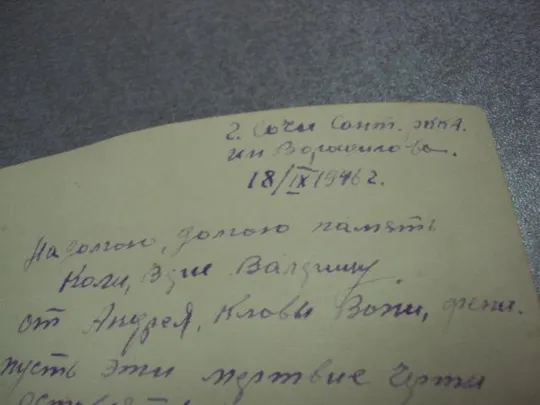 г. Сочи Сант. ККА.
им Ворошилова.
18/IX 1946 г.
На долгою, долгою память
Коли, Эдие
от Андрея, Клавы Вани, фени.
пусть эти мертвие черти